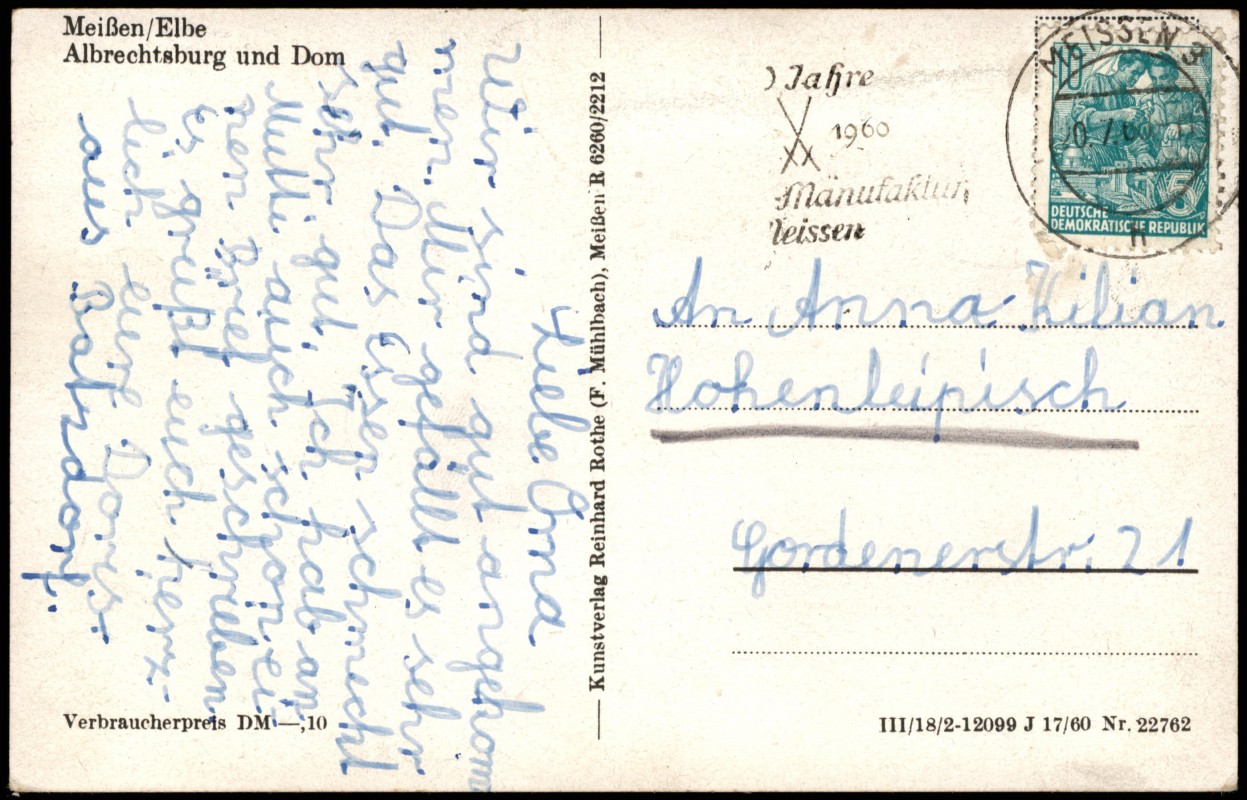 Meißen/Elbe
Albrechtsburg und Dom
Liebe Oma
Wir sind gut angekom
men. Mir gefällt es sehr
gut. Das Essen schmeckt
sehr gut. Ich hab an
Mutti auch schon ei-
nen Brief geschrieben
Es grüßt euch herz-
lich eure Doris.
aus Batzdorf.
Verbraucherpreis DM —,10
Kunstverlag Reinhard Rothe (F. Mühlbach), Meißen R 6260/2212
Jahre
1960
Manufaktur
leissen
MEISSEN 3
10
5
DEUTSCHE
DEMOKRATISCHE REPUBLIK
An Anna Kilian
Hohenleipisch
Gordenerstr. 21
III/18/2-12099 J 17/60 Nr. 22762